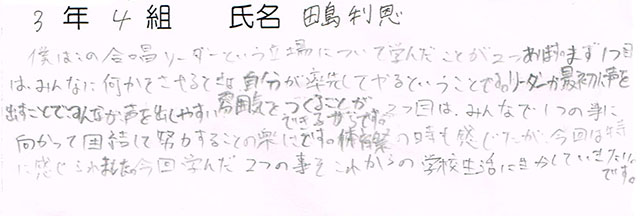 3年4組 氏名 田島利恩
僕はこの合唱リーダーという立場について学んだことが2つあります。まず1つ目
は、みんなに何かをさせるときは自分が率先してやるということです。リーダーが最初に声を
出すことでみんなが声を出しやすい雰囲気をつくることができるからです。2つ目は、みんなで1つの事に
向かって団結して努力することの楽しさです。体育祭の時も感じたが、今回は特
に感じられました。今回学んだ2つの事をこれからの学校生活に生かしていきたい
です。